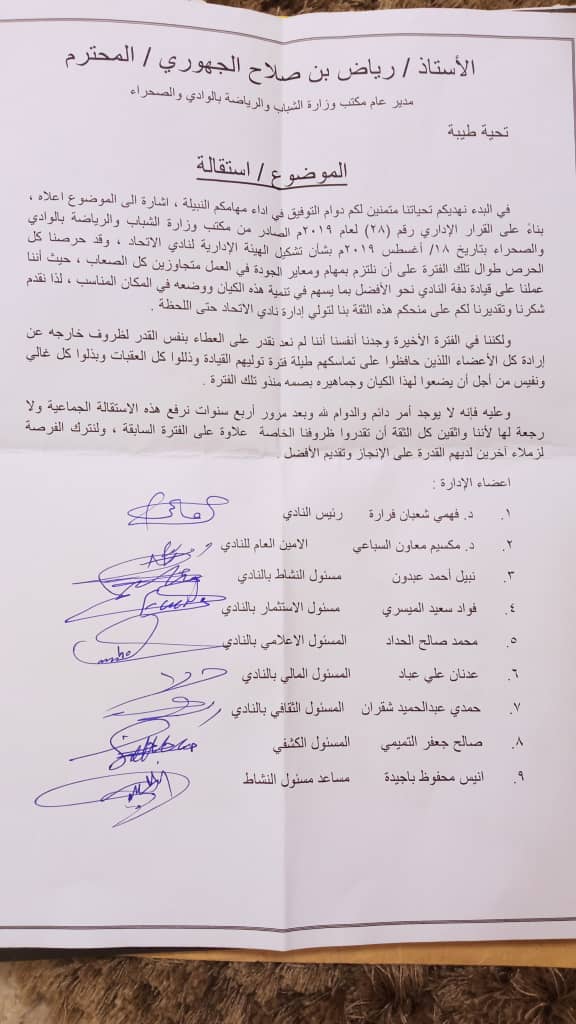 الأستاذ / رياض بن صلاح الجهوري / المحترم
مدير عام مكتب وزارة الشباب والرياضة بالوادي والصحراء
تحية طيبة
الموضوع / استقالة
في البدء نهديكم تحياتنا متمنين لكم دوام التوفيق في اداء مهامكم النبيلة ، اشارة الى الموضوع اعلاه ،
بناءً على القرار الإداري رقم (٢٨) لعام ٢٠١٩م الصادر من مكتب وزارة الشباب والرياضة بالوادي
والصحراء بتاريخ ١٨/ أغسطس ٢٠١٩م بشأن تشكيل الهيئة الإدارية لنادي الاتحاد ، وقد حرصنا كل
الحرص طوال تلك الفترة على أن نلتزم بمهام ومعاير الجودة في العمل متجاوزين كل الصعاب ، حيث أننا
عملنا على قيادة دفة النادي نحو الأفضل بما يسهم في تنمية هذه الكيان ووضعه في المكان المناسب ، لذا نقدم
شكرنا وتقديرنا لكم على منحكم هذه الثقة بنا لتولي إدارة نادي الاتحاد حتى اللحظة .
ولكننا في الفترة الأخيرة وجدنا أنفسنا أننا لم نعد نقدر على العطاء بنفس القدر لظروف خارجه عن
إرادة كل الأعضاء اللذين حافظوا على تماسكهم طيلة فترة توليهم القيادة وذللوا كل العقبات وبذلوا كل غالي
ونفيس من أجل أن يضعوا لهذا الكيان وجماهيره بصمه منذو تلك الفترة .
وعليه فإنه لا يوجد أمر دائم والدوام لله وبعد مرور أربع سنوات نرفع هذه الاستقالة الجماعية ولا
رجعة لها لأننا واثقين كل الثقة أن تقدروا ظروفنا الخاصة علاوة على الفترة السابقة ، ولنترك الفرصة
لزملاء آخرين لديهم القدرة على الإنجاز وتقديم الأفضل .
اعضاء الإدارة :
١. د. فهمي شعبان فرارة رئيس النادي
٢. د. مكسيم معاون السباعي الامين العام للنادي
٣. نبيل أحمد عبدون مسئول النشاط بالنادي
٤. فواد سعيد الميسري مسئول الاستثمار بالنادي
٥. محمد صالح الحداد المسئول الاعلامي بالنادي
٦. عدنان علي عباد المسئول المالي بالنادي
٧. حمدي عبدالحميد شقران المسئول الثقافي بالنادي
٨. صالح جعفر التميمي المسئول الكشفي
٩. انيس محفوظ باجيدة مساعد مسئول النشاط